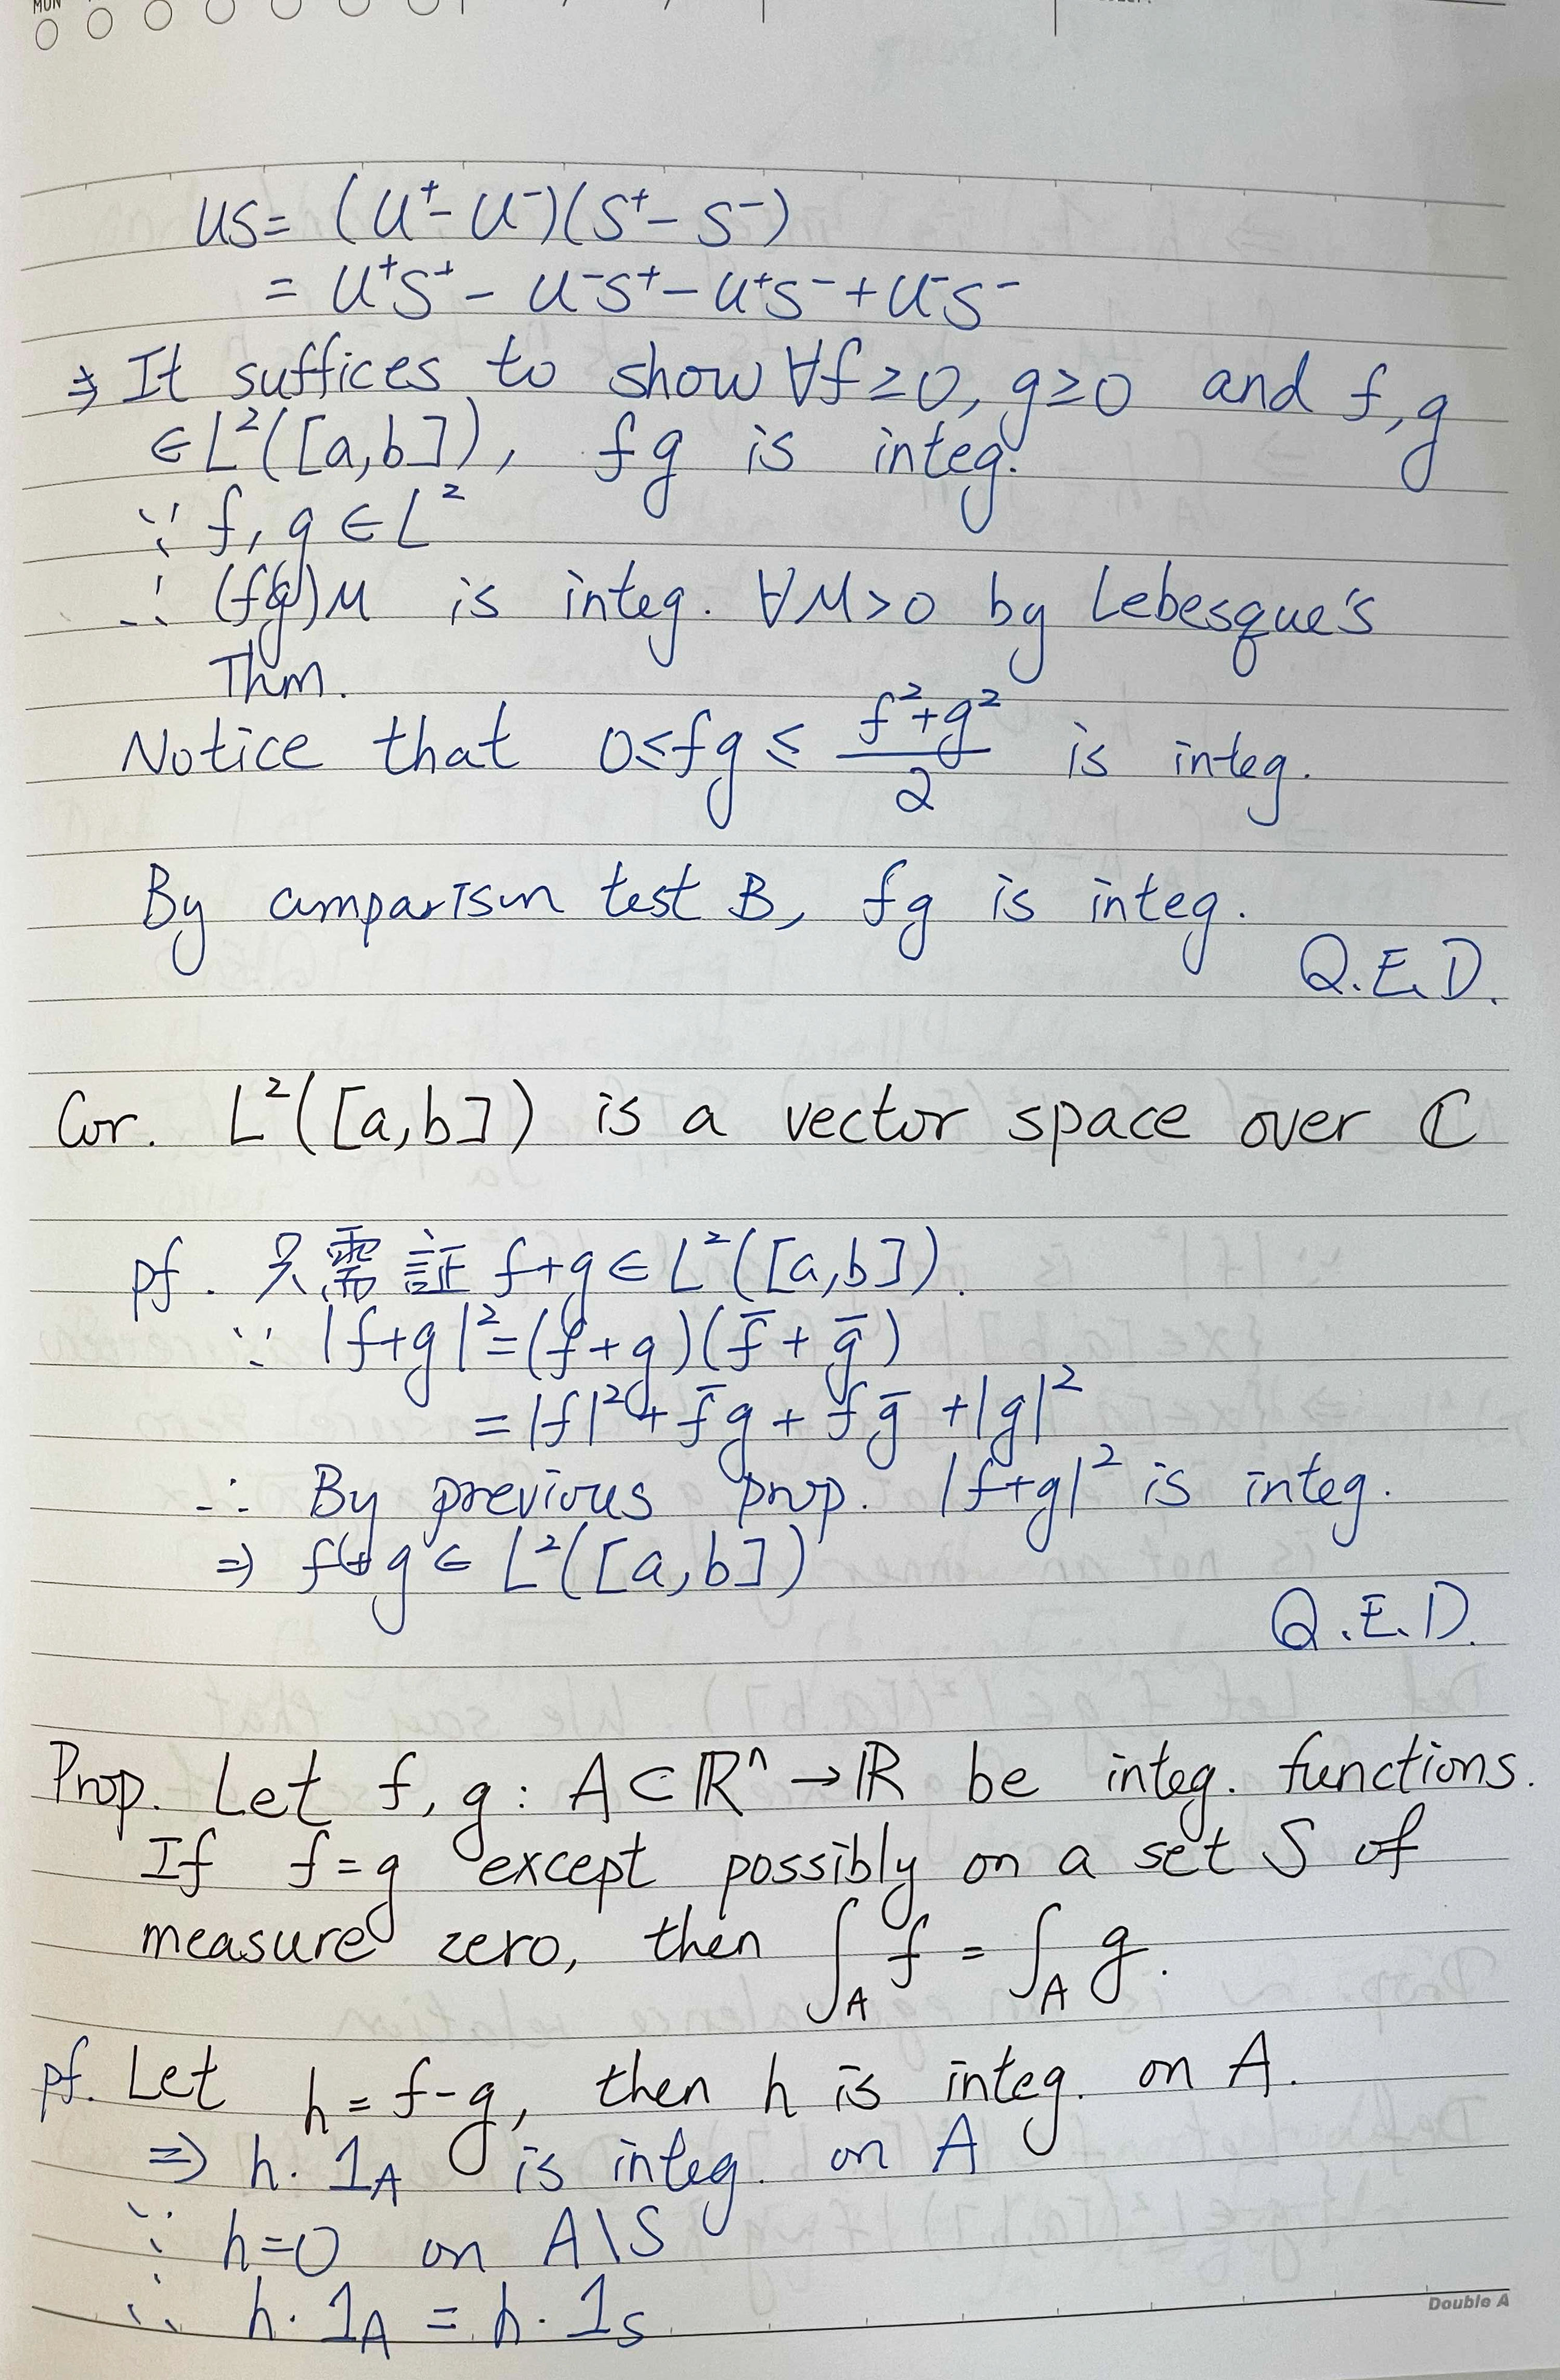 MON
US = (U⁺ - U⁻)(S⁺ - S⁻)
= U⁺S⁺ - U⁻S⁺ - U⁺S⁻ + U⁻S⁻
⇒ It suffices to show ∀f ≥ 0, g ≥ 0 and f, g
∈ L²([a,b]), fg is integ.
∵ f, g ∈ L²
∴ (fg)M is integ. ∀M > 0 by Lebesque's
Thm.
Notice that 0 ≤ fg ≤ (f²+g²)/2 is integ.
By comparison test B, fg is integ.
Q.E.D.
Cor. L²([a,b]) is a vector space over ℂ
pf. 只需証 f+g ∈ L²([a,b]).
∵ |f+g|² = (f+g)(f̄ + ḡ)
= |f|² + f̄g + fḡ + |g|²
∴ By previous prop. |f+g|² is integ.
⇒ f+g ∈ L²([a,b])
Q.E.D.
Prop. Let f, g : A ⊂ ℝⁿ → ℝ be integ. functions.
If f = g except possibly on a set S of
measure zero, then ∫_A f = ∫_A g.
pf. Let h = f - g, then h is integ. on A.
⇒ h · 1_A is integ. on A
∵ h = 0 on A\S
∴ h · 1_A = h · 1_S
Double A